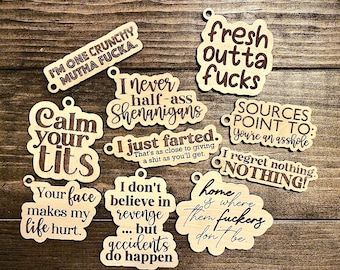 I'M ONE CRUNCHY
MUTHA FUCKA.
fresh
outta
fucks
I never
half-ass
Shenanigans
Calm
your
tits
SOURCES
POINT TO:
You're an asshole
I just farted.
That's as close to giving
a shit as you'll get.
I regret nothing.
NOTHING!
Your face
makes my
life hurt.
I don't
believe in
revenge
...but
accidents
do happen
home
is where
them fuckers
don't be